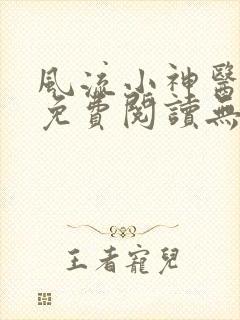 風流小神醫
免費閱讀無
王者寵兒